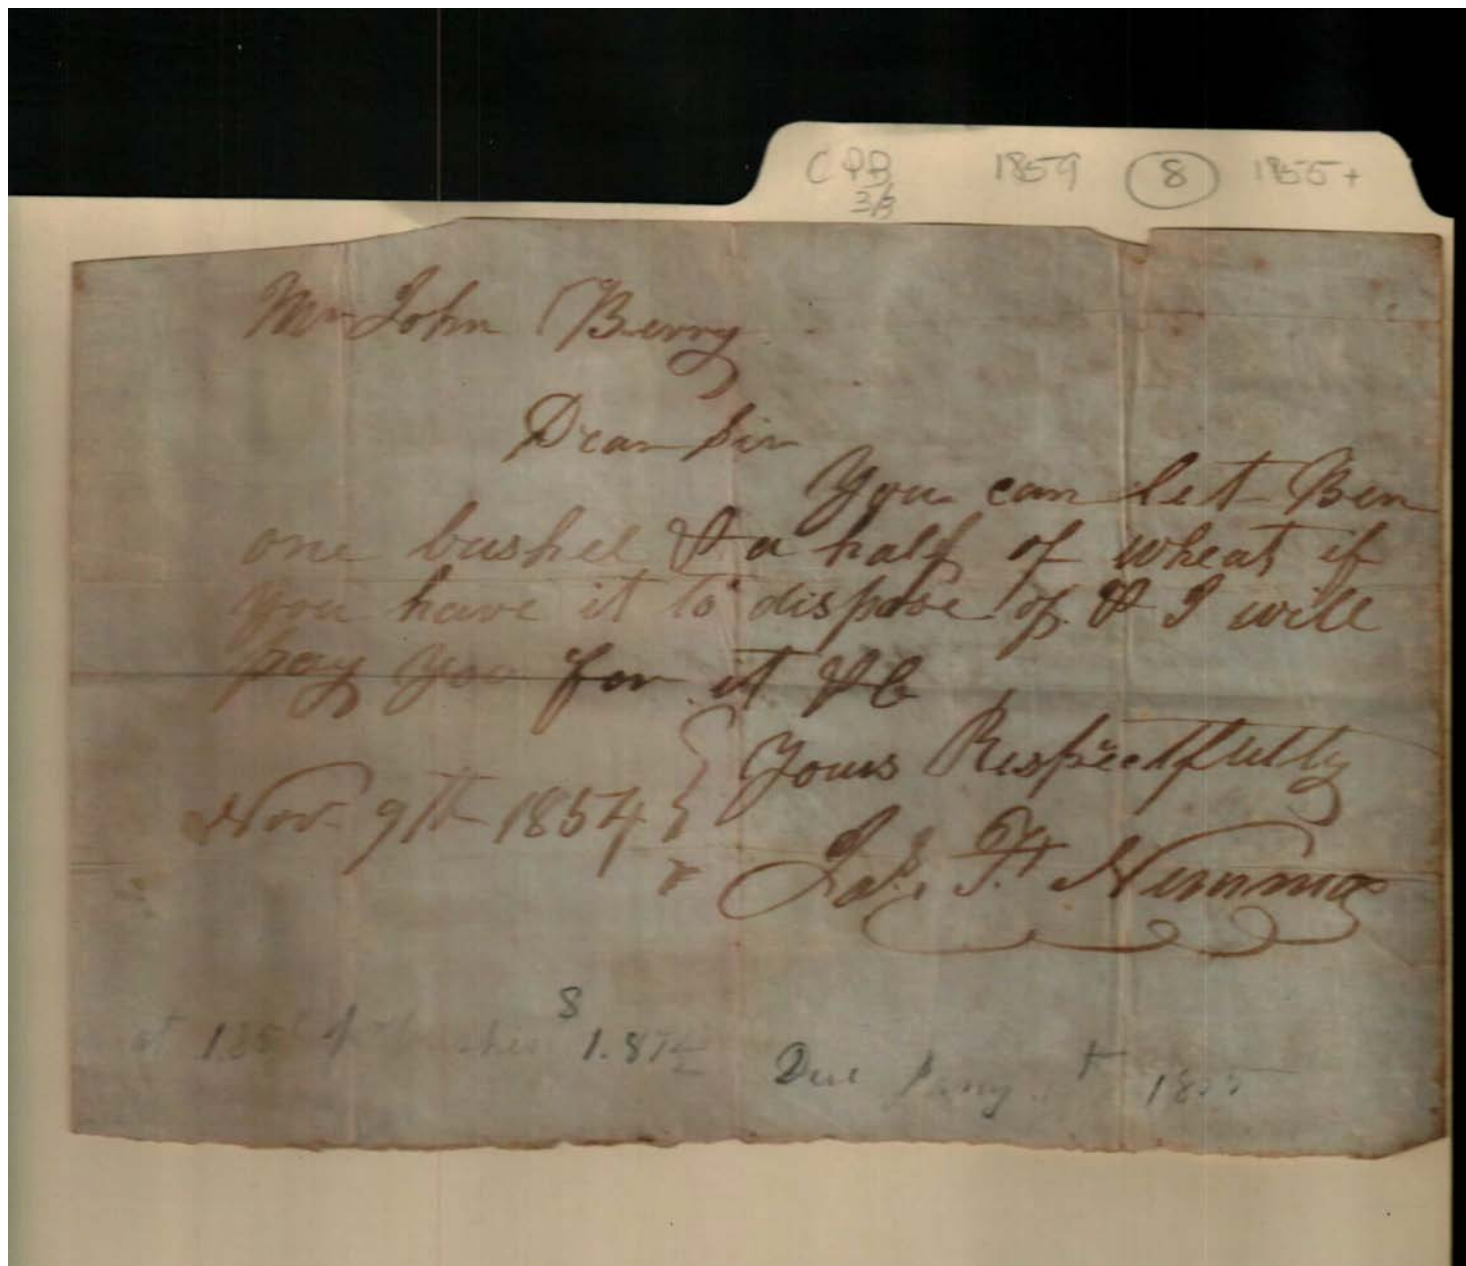 CPB 1859 8 1855+
3/3
Mr John Berry
Dear Sir
You can let Ben
one bushel & a half of wheat if
you have it to dispose of & I will
pay you for it &C
Yours Respectfully
Nov 9th 1854
Jas. F. Nimmo
at 125 $ 1.87½ Due 1855